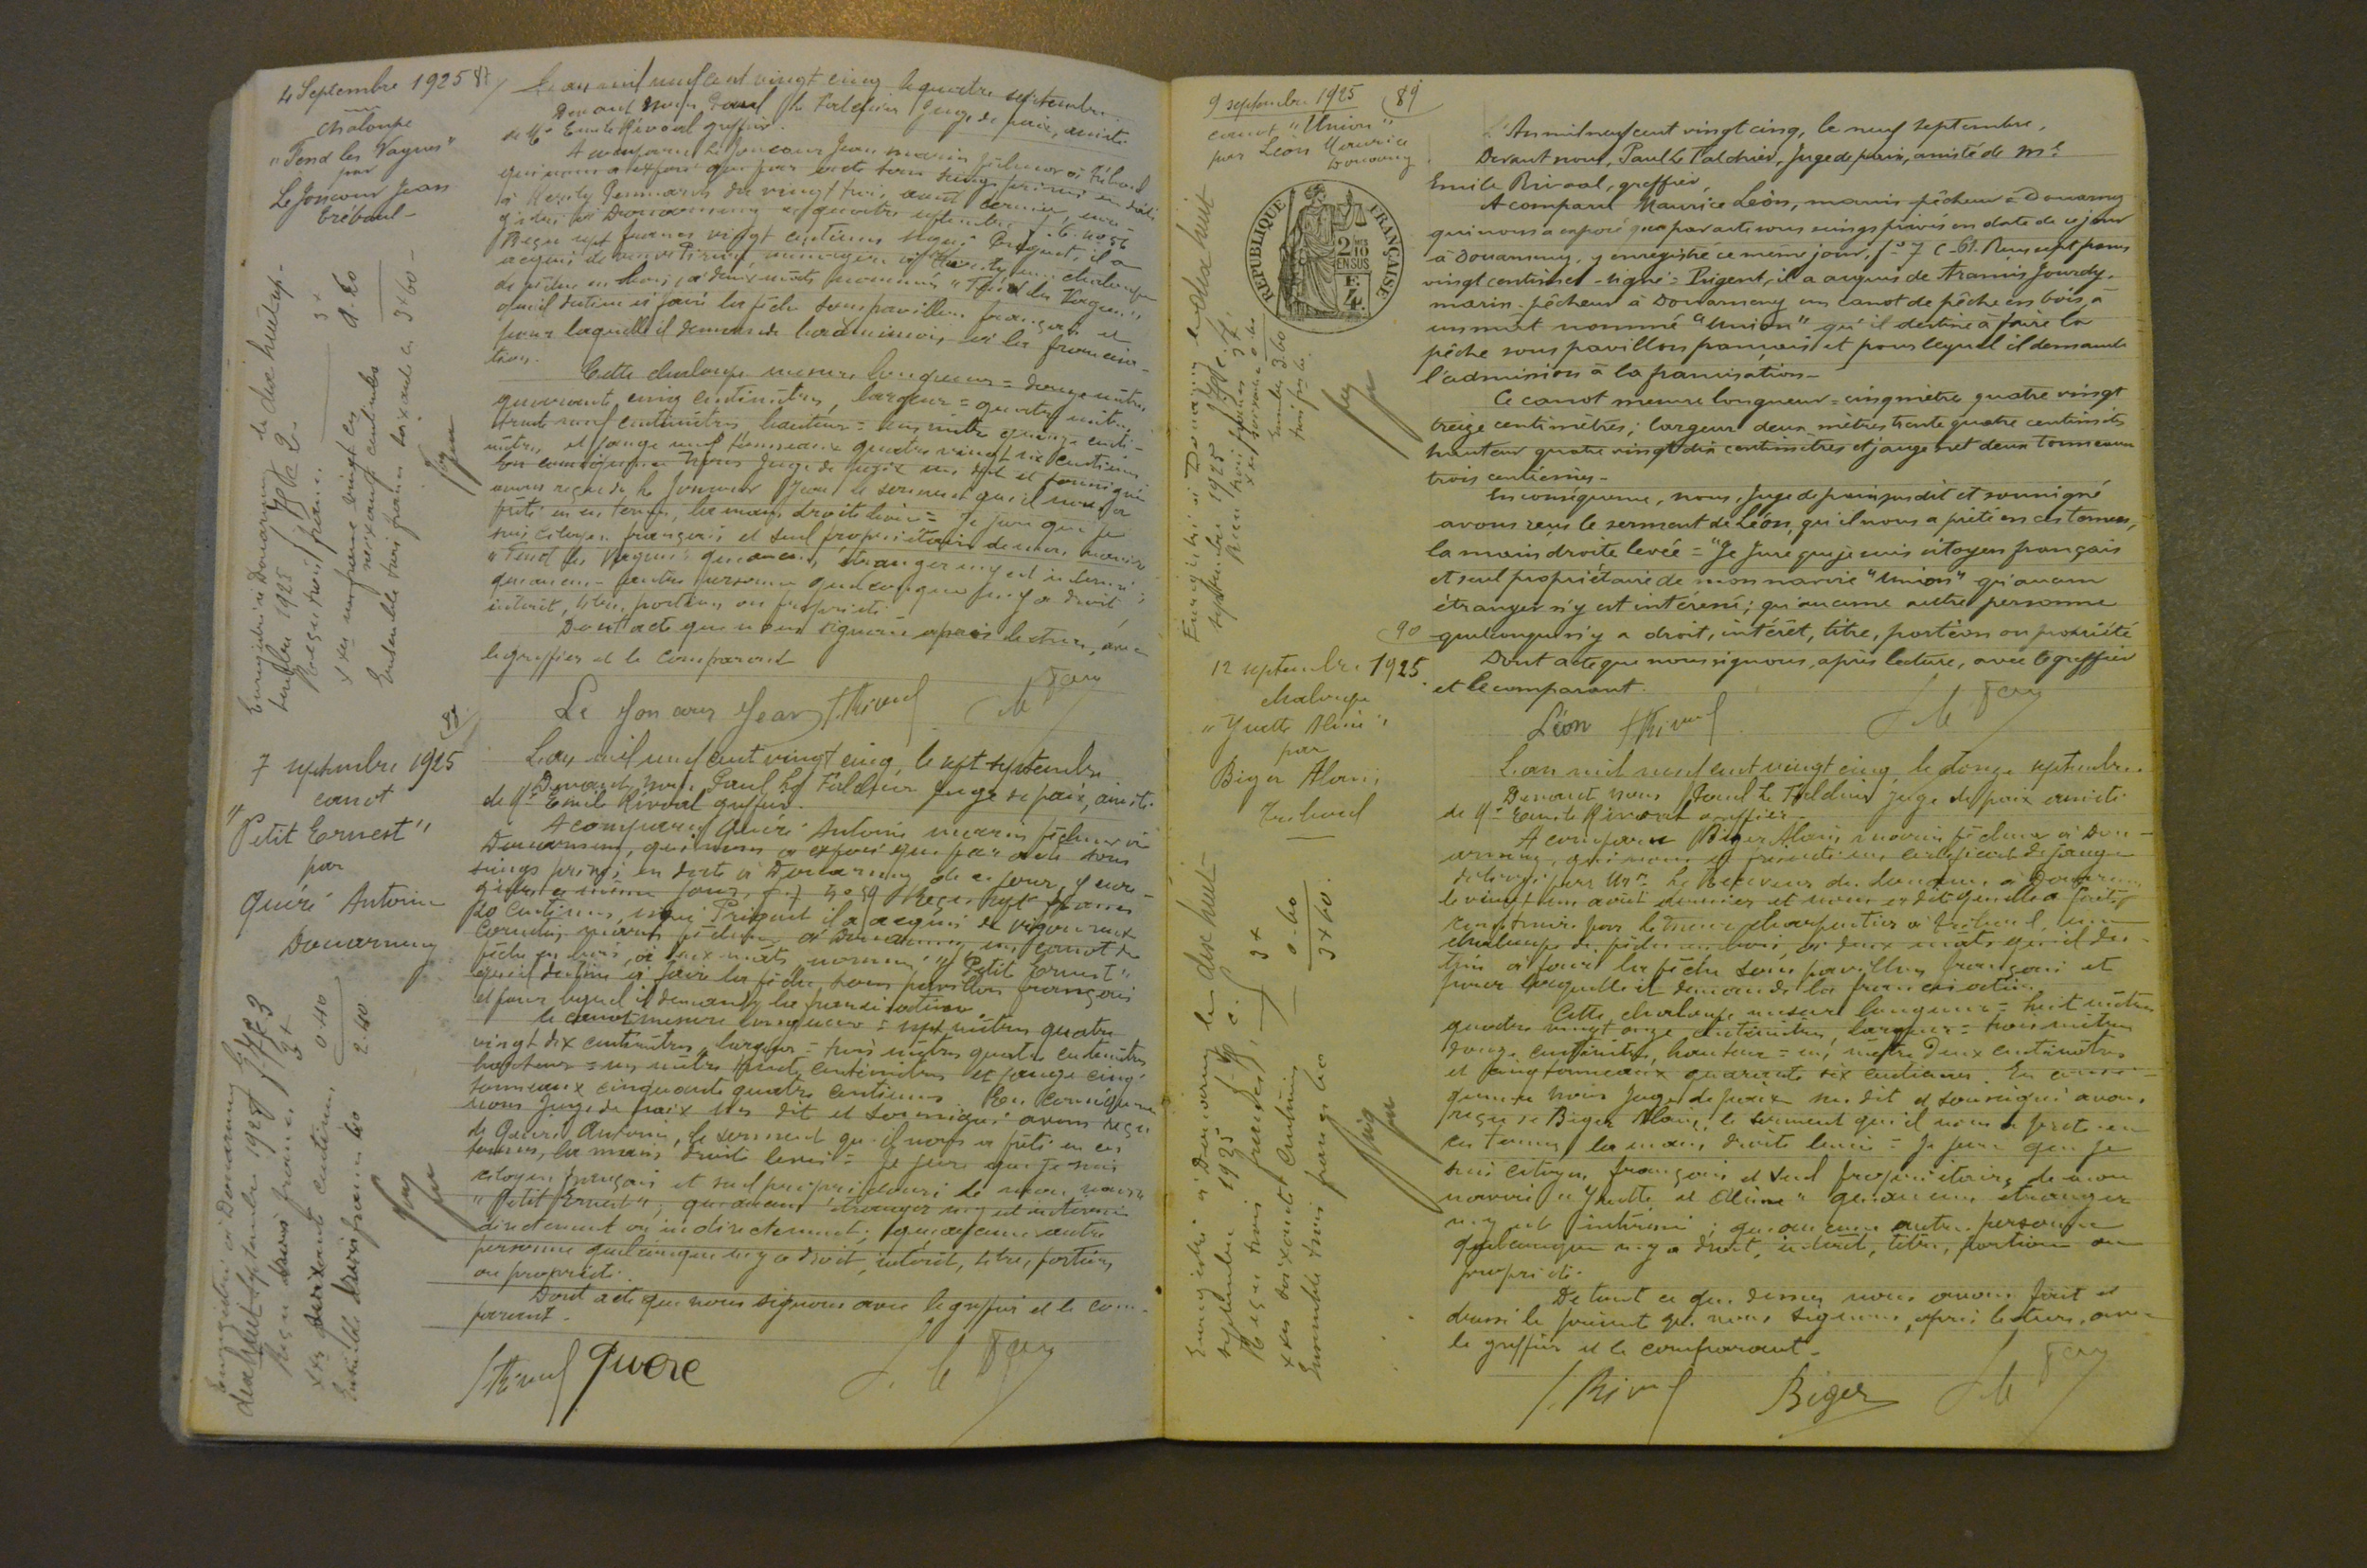 4 Septembre 1925 87
chaloupe
"Fend les Vagues"
par
Le Joncour Jean
Tréboul -
Enregistré à Douarnenez le dix huit sep-
tembre 1925
Reçu trois francs 3+
0.60
soixante centimes
Ensemble trois francs soixante c. 3+60 -
L'an mil neuf cent vingt cinq le quatre septembre.
Devant nous Paul Le Taldrir Juge de paix, assisté
de Me Emile Rivoal greffier.
A comparu Le Joncour Jean marin pêcheur à Tréboul
qui nous a exposé que par acte sous seings privés en date
à Penmarch du vingt trois août dernier, enre-
gistré à Douarnenez le quatre septembre
Reçu sept francs vingt centimes signé: Prigent, il a
acquis de une chaloupe
de pêche en bois, à deux mâts nommée "Fend les Vagues"
qu'il destine à faire la pêche sous pavillon français et
pour laquelle il demande l'admission à la francisa-
tion.
Cette chaloupe mesure longueur = douze mètres
quarante cinq centimètres, largeur = quatre mètres
trente neuf centimètres, hauteur = un mètre quinze centi-
mètres, et jauge neuf tonneaux quatre vingt six centièmes
En conséquence Nous Juge de paix sus dit et soussigné
avons reçu de Le Joncour Jean le serment qu'il nous a
prêté en ces termes, la main droite levée = Je jure que je
suis citoyen français et seul propriétaire de mon navire
"Fend les Vagues" qu'aucun étranger n'y est intéressé;
qu'aucune autre personne quelconque n'y a droit,
intérêt, titre, portion ou propriété.
Dont acte que nous signons après lecture, avec
le greffier et le comparant
Le Joncour Jean
88
7 septembre 1925
canot
"Petit Ernest"
par
Quéré Antoine
Douarnenez
Enregistré à Douarnenez le
dix huit septembre 1925
Reçu francs
0.40
soixante centimes
2.40
L'an mil neuf cent vingt cinq, le sept septembre
Devant nous, Paul Le Taldrir Juge de paix, assisté
de Me Emile Rivoal greffier.
A comparu Quéré Antoine marin pêcheur à
Douarnenez, qui nous a exposé que par acte sous
seings privés en date à Douarnenez de ce jour, y enre-
gistré ce même jour, f. 7 no 59 Reçu sept francs
20 centimes, signé Prigent il a acquis de Vigouroux
Corentin marin pêcheur à Douarnenez un canot de
pêche en bois, à deux mâts nommé "Petit Ernest"
qu'il destine à faire la pêche sous pavillon français
et pour lequel il demande la francisation.
Ce canot mesure longueur = sept mètres quatre
vingt dix centimètres, largeur = trois mètres quatre centimètres
hauteur = un mètre centimètres et jauge cinq
tonneaux cinquante quatre centièmes. En conséquence
nous Juge de paix sus dit et soussigné avons reçu
de Quéré Antoine, le serment qu'il nous a prêté en ces
termes, la main droite levée = Je jure que je suis
citoyen français et seul propriétaire de mon navire
"Petit Ernest", qu'aucun étranger n'y est intéressé
directement ou indirectement; qu'aucune autre
personne quelconque n'y a droit, intérêt, titre, portion,
ou propriété.
Dont acte que nous signons avec le greffier et le com-
parant.
Quéré
9 septembre 1925 89
canot "Union"
par Léon Maurice
Douarnenez
RÉPUBLIQUE FRANÇAISE
2/10
EN SUS
E.
4.
Enregistré à Douarnenez le dix huit
septembre 1925
Reçu trois francs 3+
soixante 0.60
Ensemble 3.60
L'An mil neuf cent vingt cinq, le neuf septembre,
Devant nous, Paul Le Taldrir, Juge de paix, assisté de Me
Emile Rivoal, greffier,
A comparu Maurice Léon, marin-pêcheur à Douarnenez
qui nous a exposé que par acte sous seings privés en date de ce jour
à Douarnenez, y enregistré ce même jour, fo 7 c. 61. Reçu sept francs
vingt centimes - signé = Prigent, il a acquis de Aramis Jourdy,
marin-pêcheur à Douarnenez un canot de pêche en bois, à
un mât nommé "Union" qu'il destine à faire la
pêche sous pavillon français et pour lequel il demande
l'admission à la francisation -
Ce canot mesure longueur = cinq mètres quatre vingt
treize centimètres; largeur deux mètres trente quatre centimètres
hauteur quatre vingt dix centimètres et jauge net deux tonneaux
trois centièmes -
En conséquence, nous, Juge de paix susdit et soussigné
avons reçu le serment de Léon, qu'il nous a prêté en ces termes,
la main droite levée = "Je Jure que je suis citoyen français
et seul propriétaire de mon navire "Union" qu'aucun
étranger n'y est intéressé; qu'aucune autre personne
quelconque n'y a droit, intérêt, titre, portion ou propriété
Dont acte que nous signons, après lecture, avec le greffier
et le comparant.
Léon
90
12 septembre 1925
chaloupe
"Yvette Aline"
par
Biger Alain
Tréboul
Enregistré à Douarnenez le dix huit
septembre 1925
Reçu trois francs 3+
soixante centimes 0.60
Ensemble trois francs 60 3+60.
L'an mil neuf cent vingt cinq, le douze septembre
Devant nous Paul Le Taldrir Juge de paix assisté
de Me Emile Rivoal greffier -
A comparu Biger Alain, marin pêcheur à Dou-
arnenez, qui nous a présenté un certificat de jauge
délivré par Mr Le Receveur des douanes à Douarnenez
le vingt un août dernier et nous a dit qu'elle a fait
construire par charpentier à Tréboul, une
chaloupe de pêche en bois, à deux mâts qu'il des-
tine à faire la pêche sous pavillon français et
pour laquelle il demande la francisation.
Cette chaloupe mesure longueur = huit mètres
quatre vingt onze centimètres, largeur = trois mètres
douze centimètres, hauteur = un mètre deux centimètres
et cinq tonneaux quarante six centièmes. En consé-
quence nous Juge de paix sus dit et soussigné avons
reçu de Biger Alain, le serment qu'il nous a prêté en
ces termes la main droite levée = Je jure que je
suis citoyen français et seul propriétaire de mon
navire "Yvette et Aline" qu'aucun étranger
n'y est intéressé; qu'aucune autre personne
quelconque n'y a droit, intérêt, titre, portion ou
propriété.
De tout ce que dessus nous avons fait et
dressé le présent que nous signons, après lecture, avec
le greffier et le comparant -
Biger